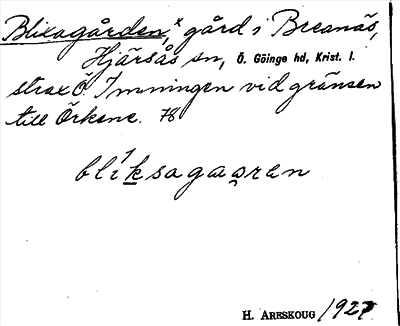 Blixagården,× gård i Breanäs,
Hjärsås sn, Ö. Göinge hd, Krist. l.
strax Ö. Immingen vid gränsen
till Örkene. 78
blìksagaaren
H. Areskoug 1927